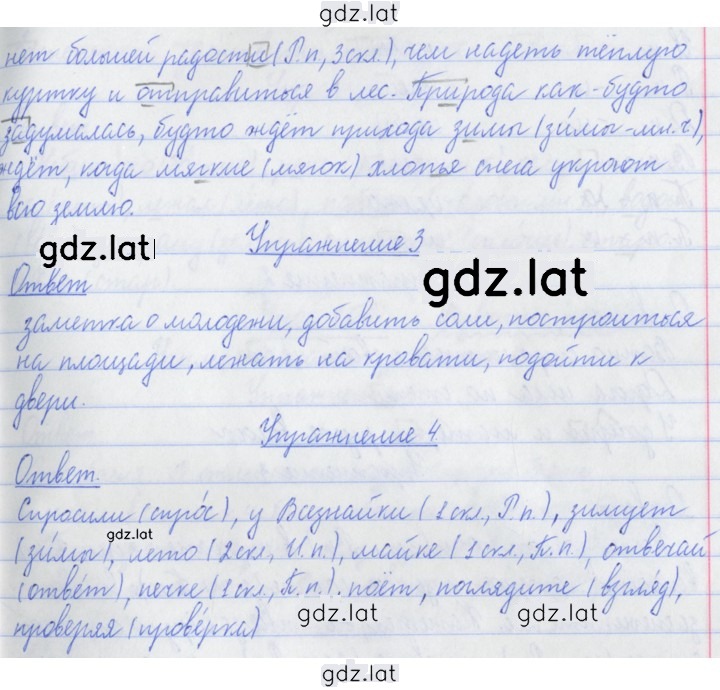 gdz.lat
нет большей радости (Р.п, 3скл), чем надеть тёплую
куртку и отправиться в лес. Природа как-будто
задумалась, будто ждёт прихода зимы (зи́мы-мн.ч),
ждёт, когда мягкие (мягок) хлопья снега укроют
всю землю.
Упражнение 3
gdz.lat
gdz.lat
Ответ
заметка о молодежи, добавить соли, построиться
на площади, лежать на кровати, подойти к
двери.
Упражнение 4
Ответ.
Спросили (спро́с), у Всезнайки (1скл., Р.п.), зимует
gdz.lat
(зи́мы), лето (2скл., И.п.), майке (1скл., П.п.), отвечай
(отве́т), печке (1скл., П.п.). поёт, поглядите (взгля́д),
gdz.lat
gdz.lat
проверяя (прове́рка)
gdz.lat